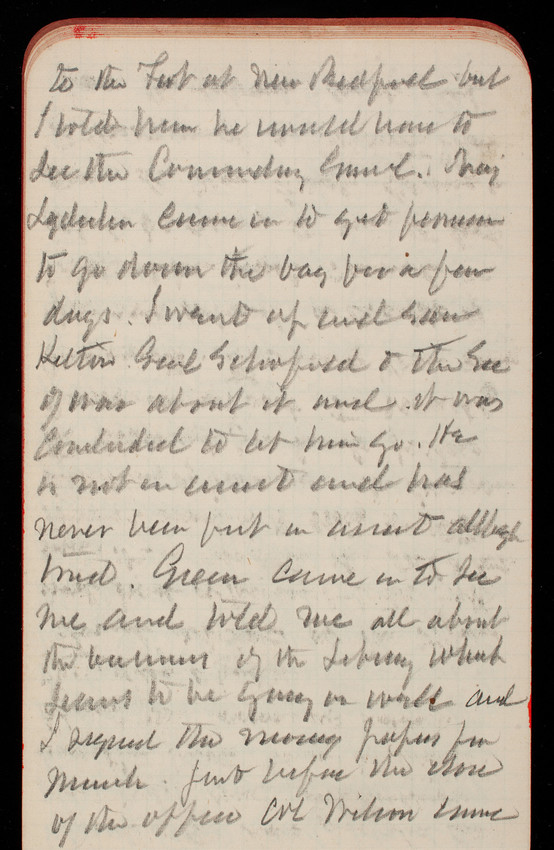 to the Fort at New Bedford but
I told him he would have to
see the Commdng Genrl. Maj
Lydecker came in to get permission
to go down the bay for a few
days. I went up and saw
Kelton Genl Schofield & the Sec
of War about it and it was
concluded to let him go. He
is not in arrest and has
never been put in arrest although
tried. Green came in to see
me and told me all about
the business of the Library which
seems to be going on well and
I signed the money papers for
March. Just before the close
of the office Col Wilson came